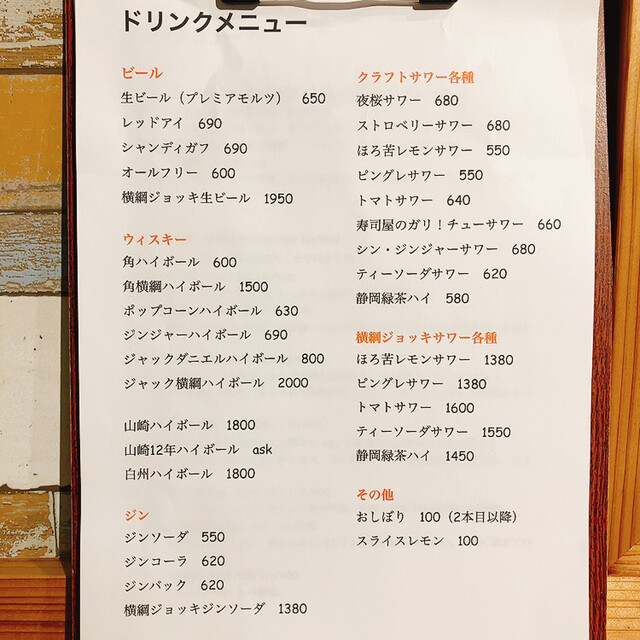 ドリンクメニュー
ビール
生ビール（プレミアモルツ） 650
レッドアイ 690
シャンディガフ 690
オールフリー 600
横綱ジョッキ生ビール 1950
ウィスキー
角ハイボール 600
角横綱ハイボール 1500
ポップコーンハイボール 630
ジンジャーハイボール 690
ジャックダニエルハイボール 800
ジャック横綱ハイボール 2000
山崎ハイボール 1800
山崎12年ハイボール ask
白州ハイボール 1800
ジン
ジンソーダ 550
ジンコーラ 620
ジンバック 620
横綱ジョッキジンソーダ 1380
クラフトサワー各種
夜桜サワー 680
ストロベリーサワー 680
ほろ苦レモンサワー 550
ピングレサワー 550
トマトサワー 640
寿司屋のガリ！チューサワー 660
シン・ジンジャーサワー 680
ティーソーダサワー 620
静岡緑茶ハイ 580
横綱ジョッキサワー各種
ほろ苦レモンサワー 1380
ピングレサワー 1380
トマトサワー 1600
ティーソーダサワー 1550
静岡緑茶ハイ 1450
その他
おしぼり 100（2本目以降）
スライスレモン 100